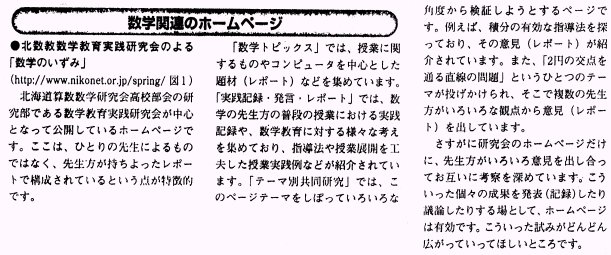 数学関連のホームページ
●北数教数学教育実践研究会のよる
「数学のいずみ」
(http://www.nikonet.or.jp/spring/ 図1)
　北海道算数数学研究会高校部会の研
究部である数学教育実践研究会が中心
となって公開しているホームページで
す。ここは、ひとりの先生によるもの
ではなく、先生方が持ちよったレポー
トで構成されているという点が特徴的
です。
　「数学トピックス」では、授業に関
するものやコンピュータを中心とした
題材（レポート）などを集めています。
「実践記録・発言・レポート」では、数
学の先生方の普段の授業における実践
記録や、数学教育に対する様々な考え
を集めており、指導法や授業展開を工
夫した授業実践例などが紹介されてい
ます。「テーマ別共同研究」では、こ
のページテーマをしぼっていろいろな
角度から検証しようとするページで
す。例えば、積分の有効な指導法を探
っており、その意見（レポート）が紹
介されています。また、「2円の交点を
通る直線の問題」というひとつのテー
マが投げかけられ、そこで複数の先生
方がいろいろな観点から意見（レポー
ト）を出しています。
　さすがに研究会のホームページだけ
に、先生方がいろいろ意見を出し合っ
てお互いに考察を深めています。こう
いった個々の成果を発表（記録）したり
議論したりする場として、ホームページ
は有効です。こういった試みがどんどん
広がっていってほしいところです。